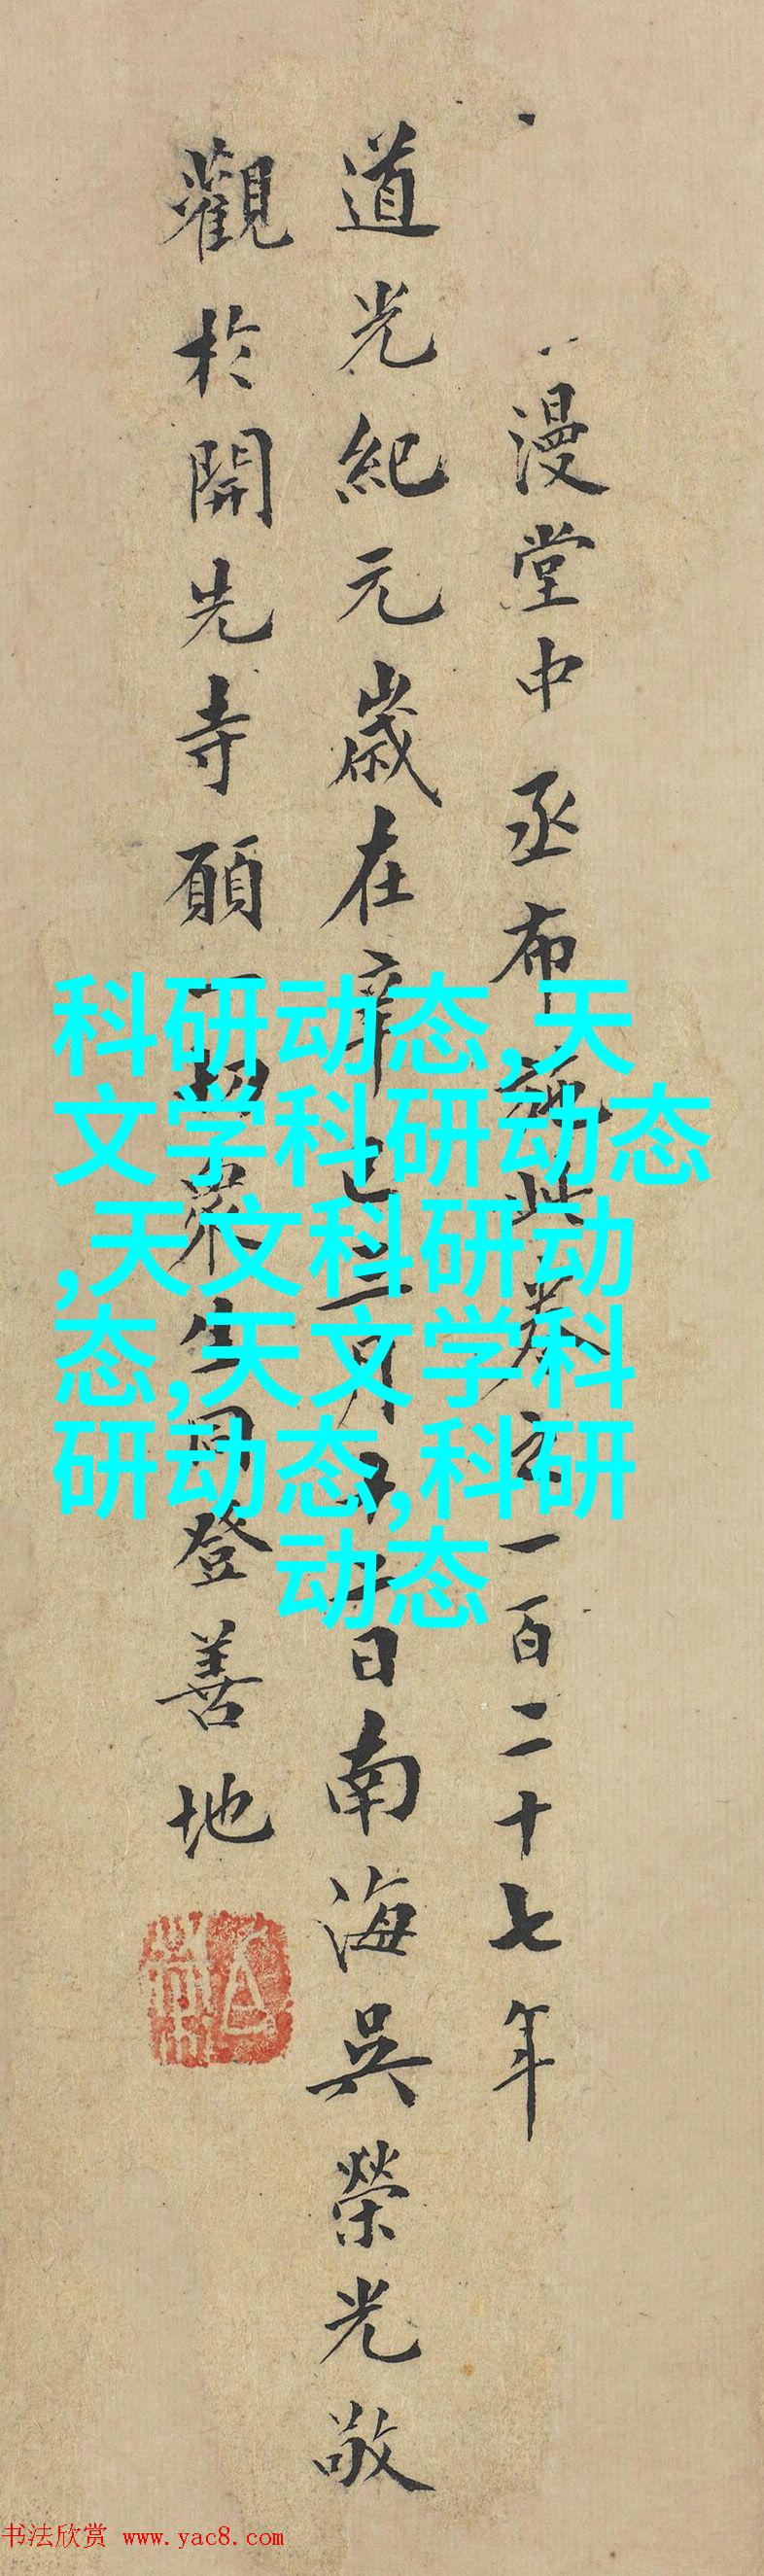 漫堂中丞布施此卷之一百二十七年
道光紀元歲在辛巳三月
日南海吳榮光敬
觀於開先寺願一切眾生同登善地
科研动态,天
文学科研动态
,天文科研动
态,天文学科
研动态,科研
动态
书法欣赏 www.yac8.com